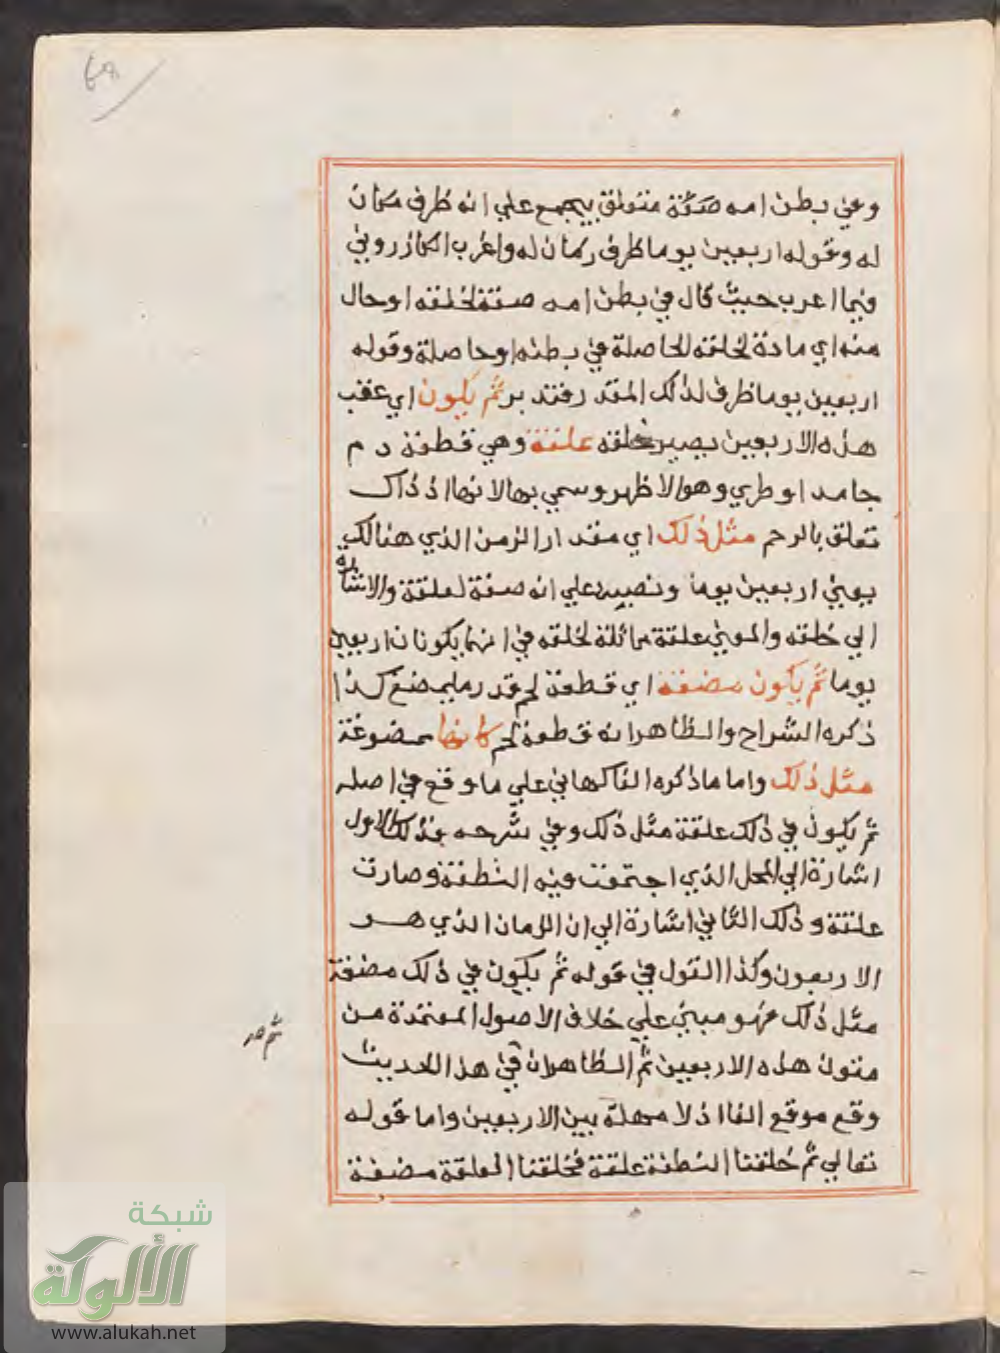 وفي بطن امه صفة متعلق بيجمع علي انه ظرف مكان
له وقوله اربعين يوما ظرف زمان له واغرب الكازروني
فيما اعرب حيث قال في بطن امه صفة لخلقه او حال
منه اي مادة خلقه الحاصلة في بطنه او حاصلة وقوله
اربعين يوما ظرف لذلك المقدر فتدبر ثم يكون اي عقب
هذه الاربعين يصير خلقه علقة وهي قطعة دم
جامد او طري وهو الاظهر وسمي بها لانها اذ ذاك
تعلق بالرحم مثل ذلك اي مقدار الزمن الذي هنالك
يعني اربعين يوما ونصبه علي انه صفة لعلقة والاشارة
الي خلقه والمعني علقة مماثلة لخلقه في انهما يكونان اربعين
يوما ثم يكون مضغة اي قطعة لحم قدر ما يمضغ كذا
ذكره الشراح والظاهر انه قطعة لحم كانها ممضوغة
مثل ذلك واما ما ذكره الفاكهاني علي ما وقع في اصله
ثم يكون في ذلك علقة مثل ذلك وفي شرحه فذلك الاول
اشارة الي المحل الذي اجتمعت فيه النطفة وصارت
علقة وذلك الثاني اشارة الي ان الزمان الذي هو
الاربعون وكذا القول في قوله ثم يكون في ذلك مضغة
مثل ذلك فهو مبني علي خلاف الاصول المعتمدة من
متون هذه الاربعين ثم الظاهر ان في هذا الحديث
وقع موقع الفا اذ لا مهلة بين الاربعين واما قوله
تعالي ثم خلقنا النطفة علقة فخلقنا العلقة مضغة
شبكة
الألوكة
www.alukah.net